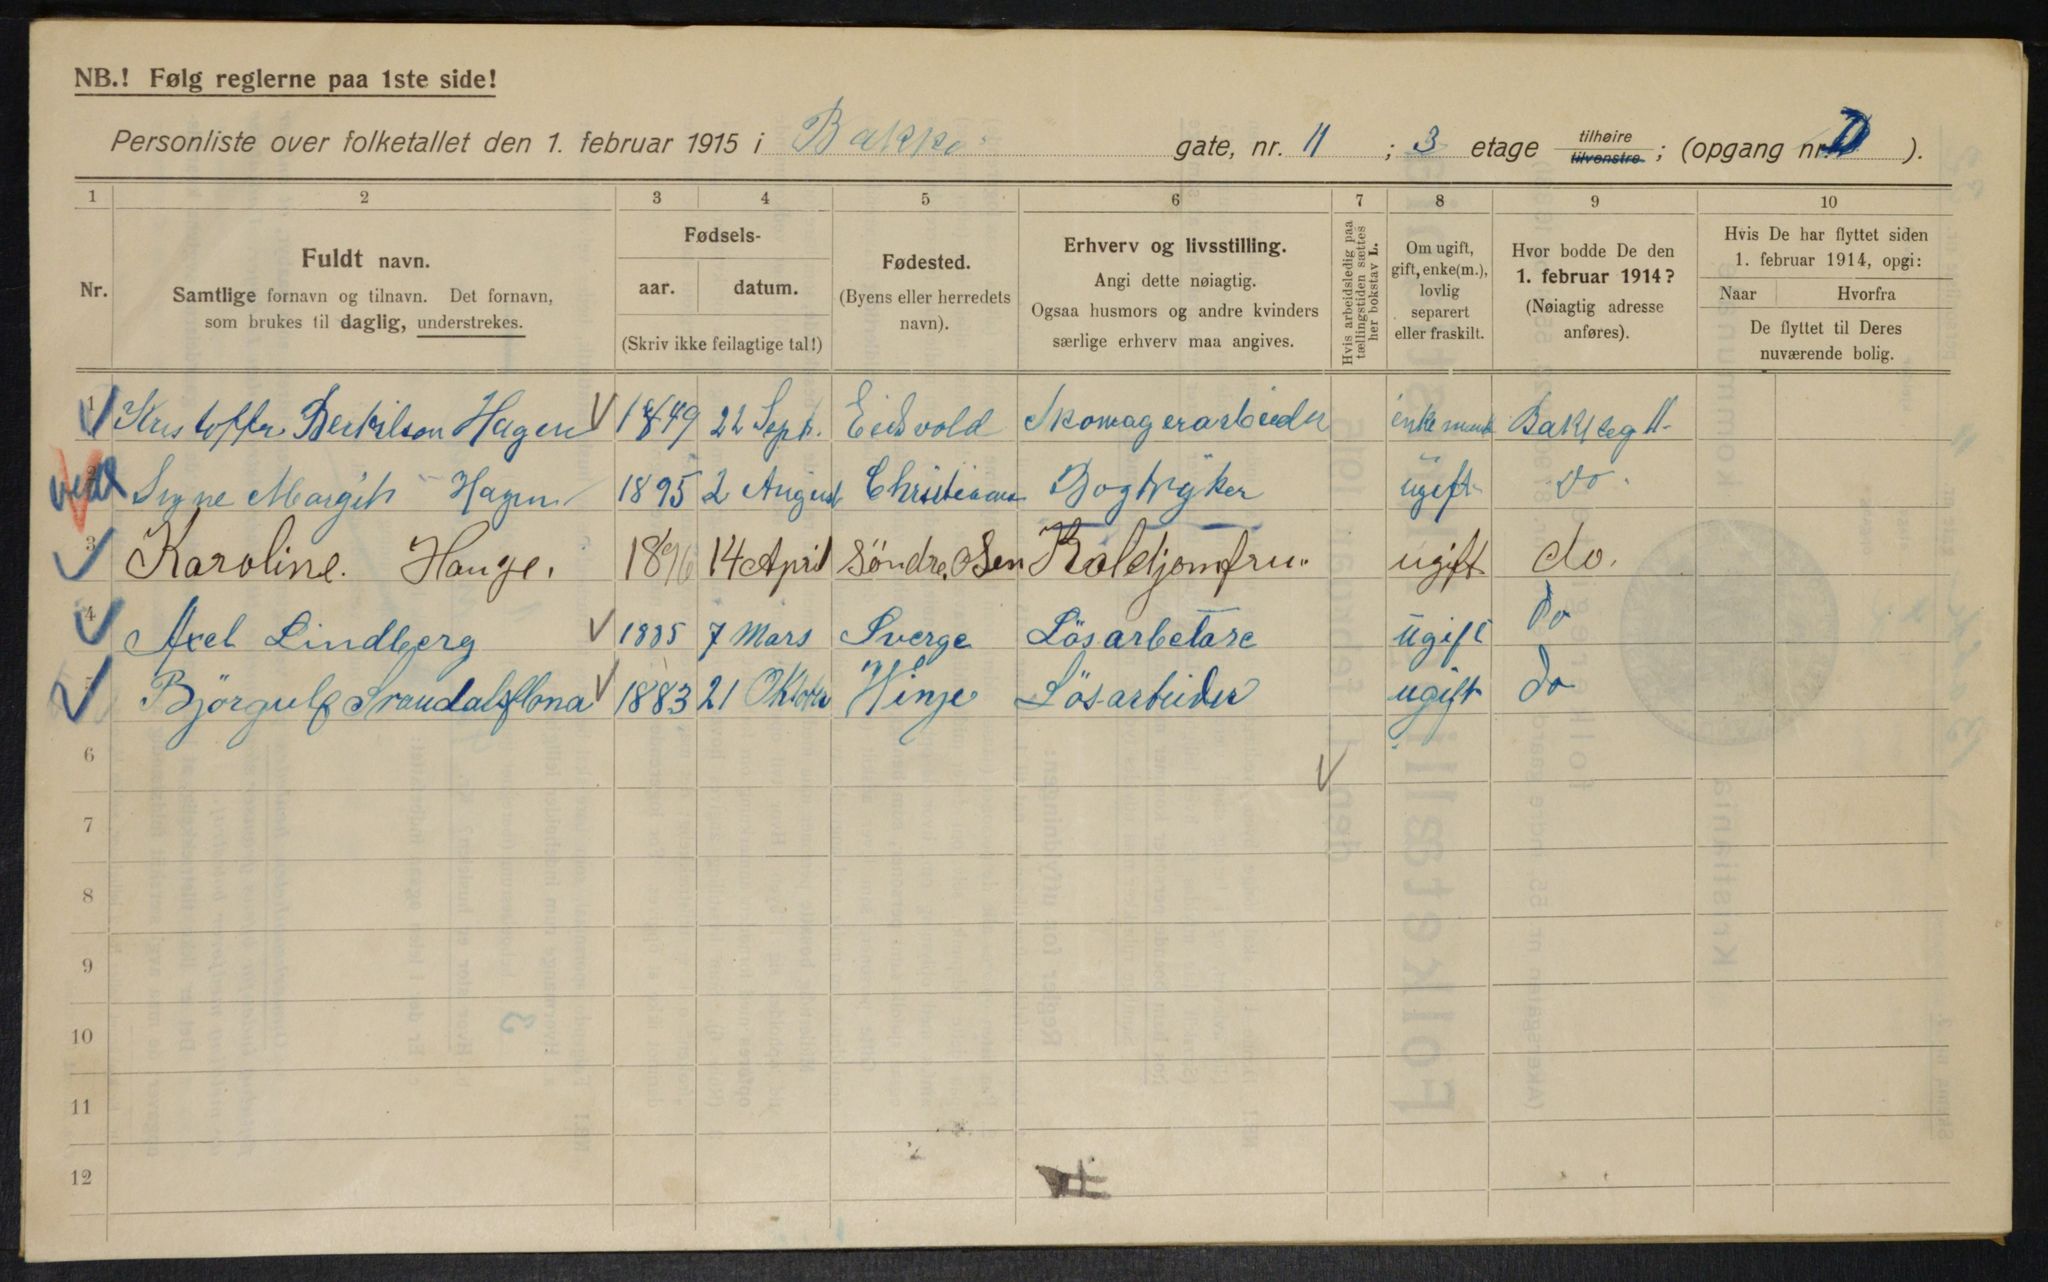 NB.! Følg reglerne paa 1ste side!
Personliste over folketallet den 1. februar 1915 i Bakke gate, nr. 11 ; 3 etage tilhøire tilvenstre ; (opgang nr. D ).
1 2 3 4 5 6 7 8 9 10
Nr.
Fuldt navn.
Samtlige fornavn og tilnavn. Det fornavn,
som brukes til daglig, understrekes.
Fødsels-
aar. datum.
(Skriv ikke feilagtige tal!)
Fødested.
(Byens eller herredets
navn).
Erhverv og livsstilling.
Angi dette nøiagtig.
Ogsaa husmors og andre kvinders
særlige erhverv maa angives.
Hvis arbeidsledig paa
tællingstiden sættes
her bokstav L.
Om ugift,
gift, enke(m.),
lovlig
separert
eller fraskilt.
Hvor bodde De den
1. februar 1914?
(Nøiagtig adresse
anføres).
Hvis De har flyttet siden
1. februar 1914, opgi:
Naar Hvorfra
De flyttet til Deres
nuværende bolig.
1 Kristoffer Berkilson Hagen 1849 22 Sept. Eidsvold Skomagerarbeider enkemand Bakkeg 11
2 Signe Margit Hagen 1895 2 August Christiania Bogtryker ugift do.
3 Karoline. Hauge. 1896 14 April Søndre. Osen Koldjomfru. ugift do.
4 Axel Lindberg 1885 7 Mars Sverge Lösarbetare ugift do
5 Björgulf 1883 21 Oktober Vinje Lösarbeider ugift do
6
7
8
9
10
11
12